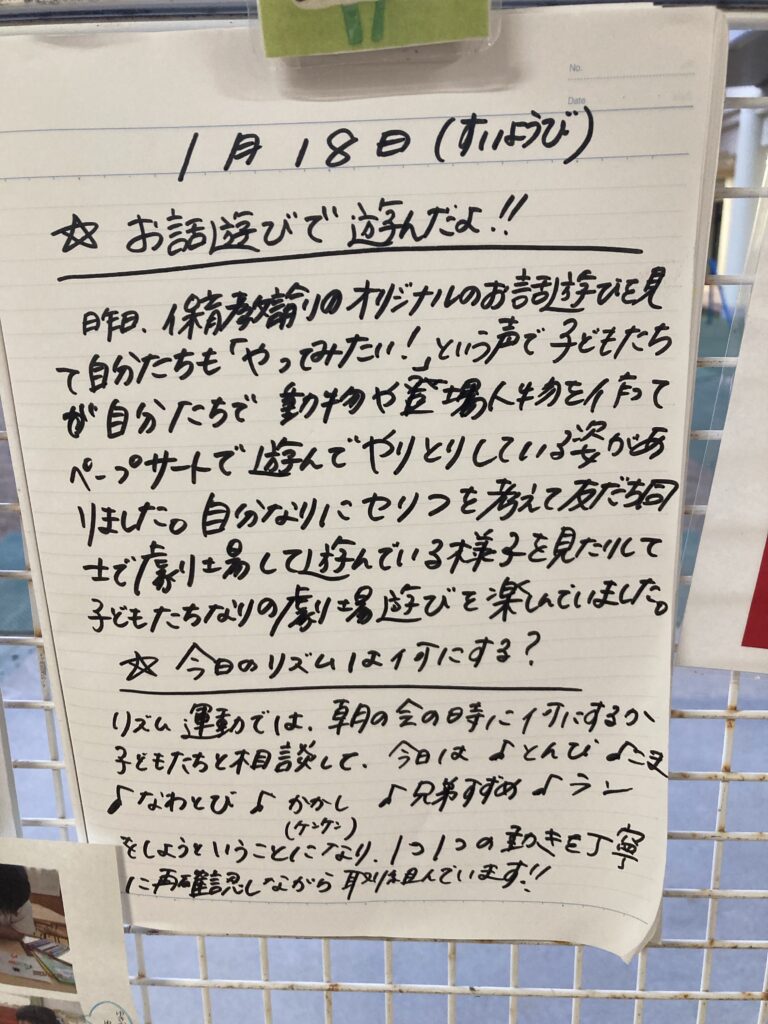 No.
Date
1月18日(すいようび)
☆ お話遊びで遊んだよ!!
昨日、保育教諭のオリジナルのお話遊びを見
て自分たちも「やってみたい!」という声で子どもたち
が自分たちで動物や登場人物を作って
ペープサートで遊んでやりとりしている姿があ
りました。自分なりにセリフを考えて友だち同
士で劇場して遊んでいる様子を見たりして
子どもたちなりの劇場遊びを楽しんでいました。
☆ 今日のリズムは何にする?
リズム運動では、朝の会の時に何にするか
子どもたちと相談して、今日は ♪とんび ♪
♪なわとび ♪かかし ♪兄弟すずめ ♪ラン
(ケンケン)
をしようということになり、1つ1つの動きを丁寧
に再確認しながら取り組んでいます!!